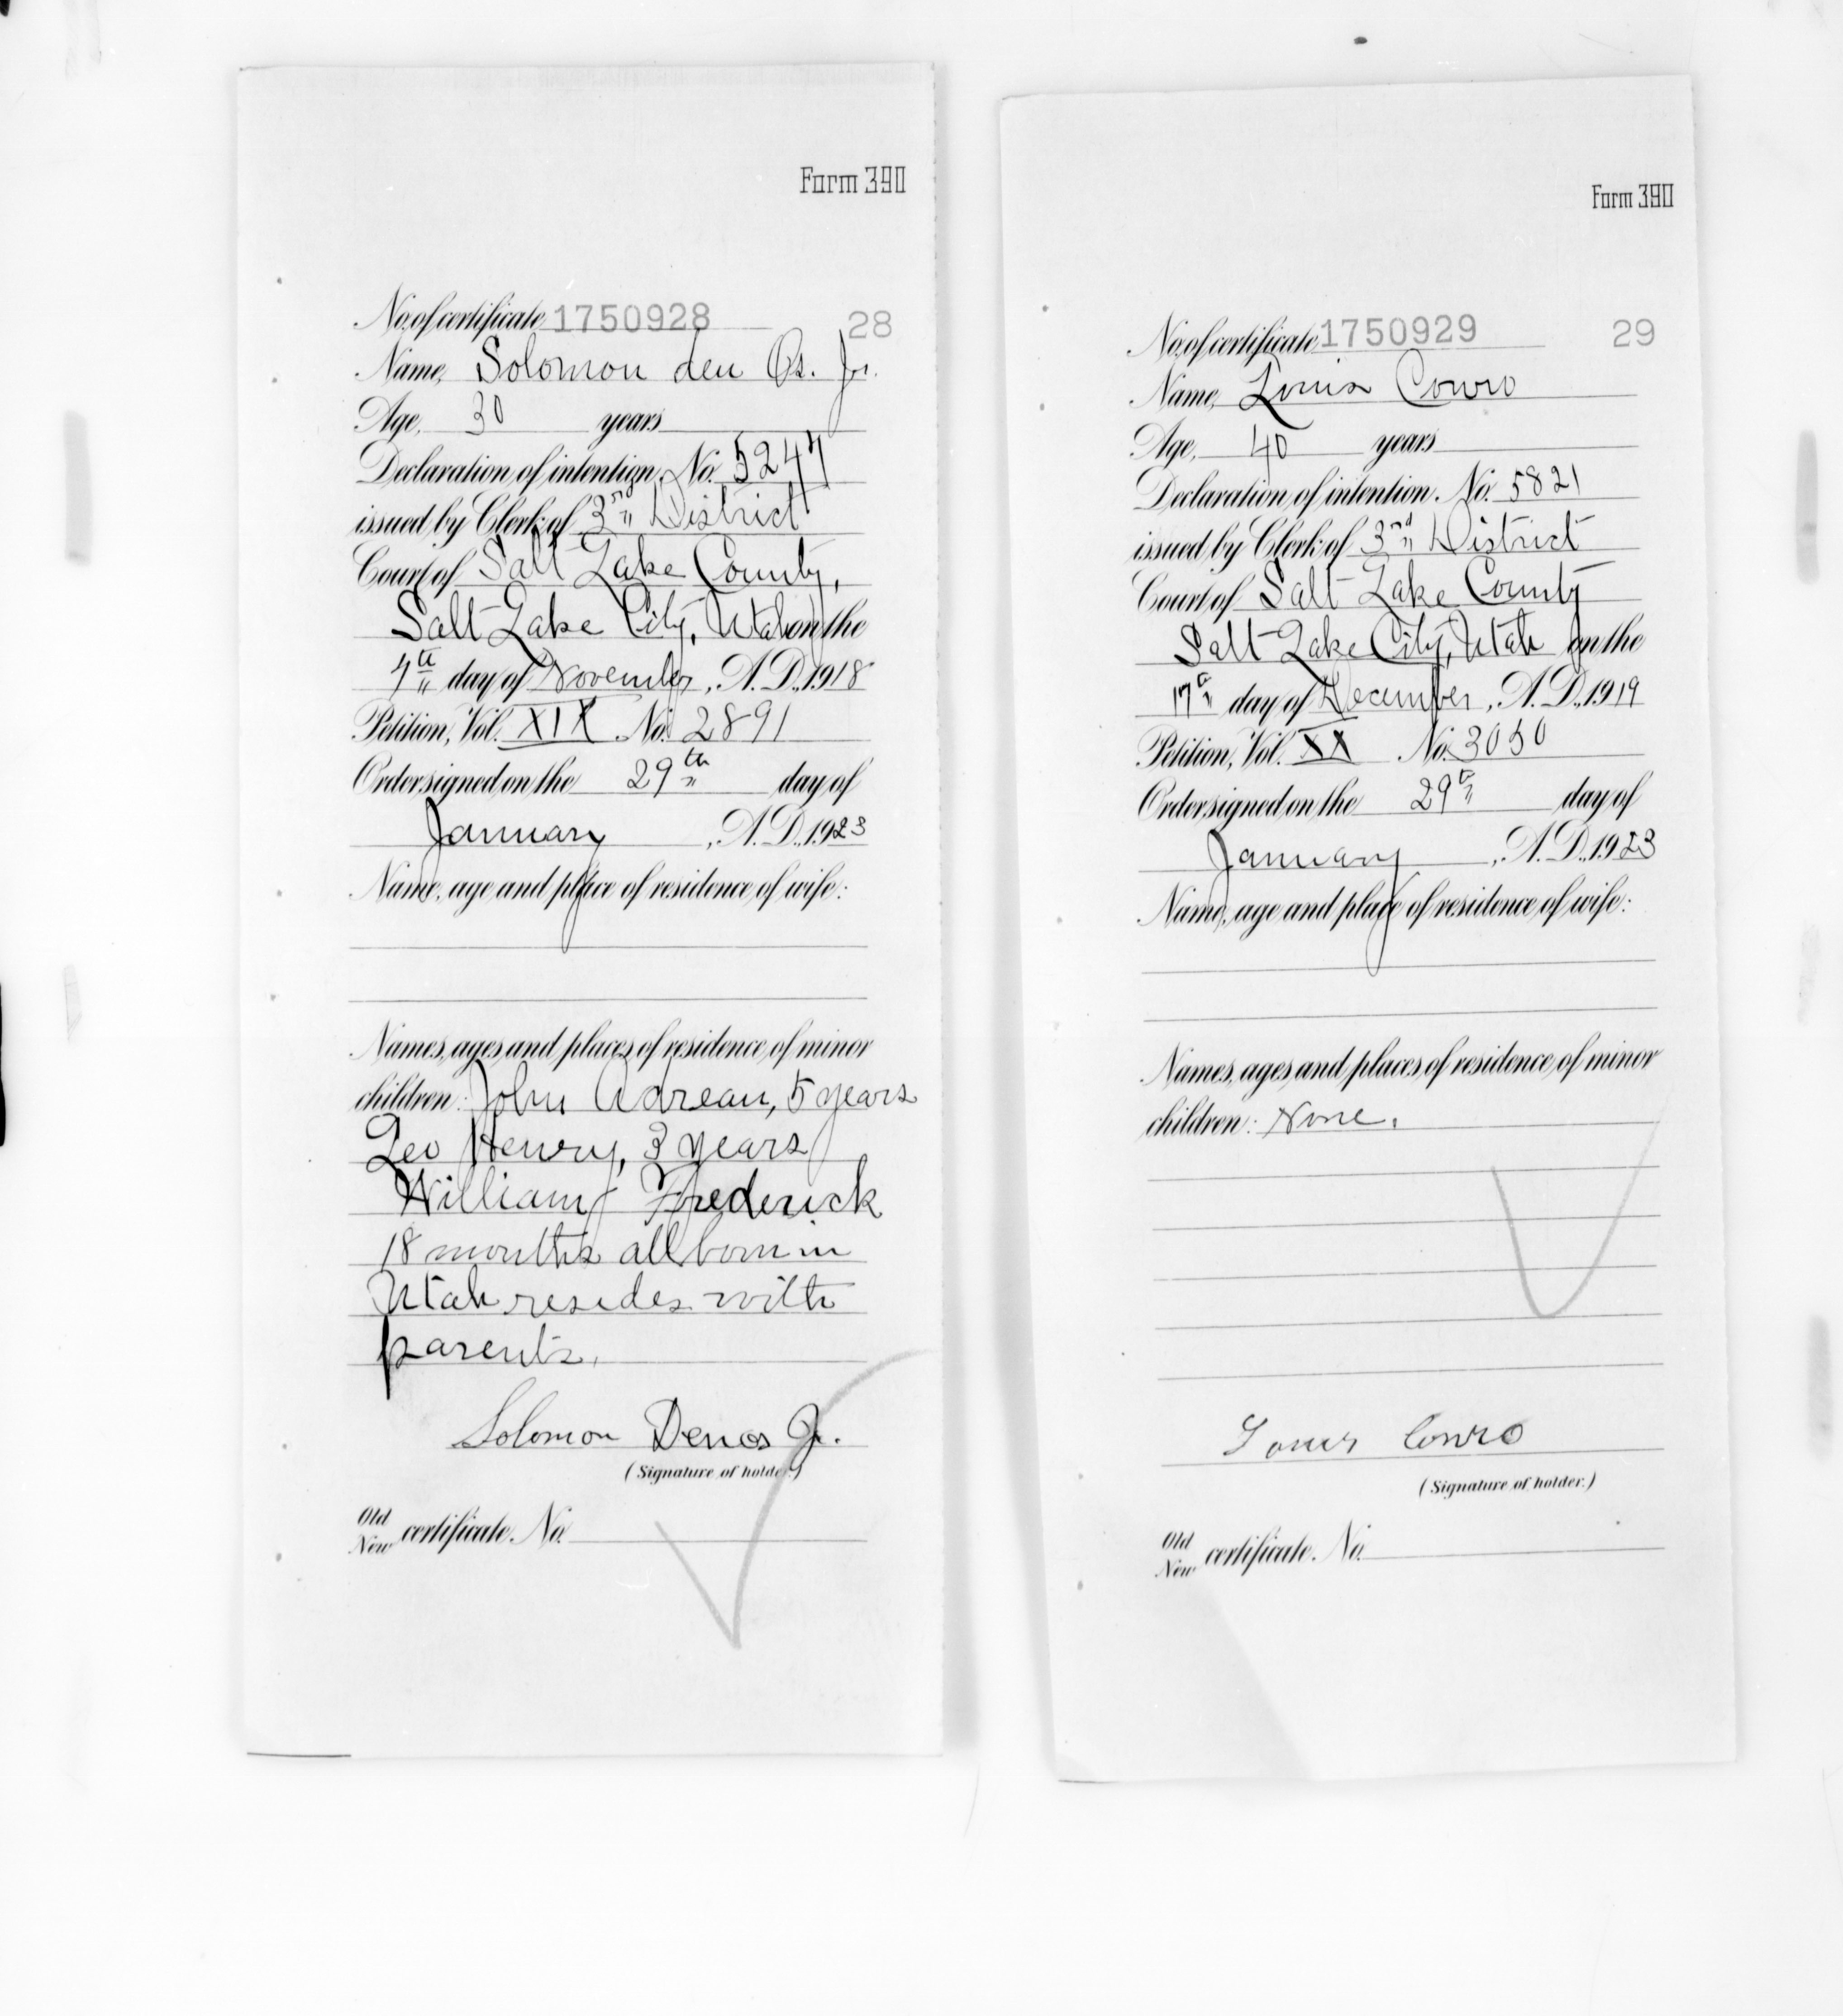 Form 390
No. of certificate 1750928 28
Name, Solomon den Os. Jr.
Age, 30 years
Declaration of intention, No. 5247
issued by Clerk of 3rd District
Court of Salt Lake County,
Salt Lake City, Utah on the
4th day of November, A. D. 1918
Petition, Vol. XIX No. 2891
Order signed on the 29th day of
January, A. D. 1923
Name, age and place of residence of wife:
Names, ages and places of residence of minor
children: John Adrean, 5 years
Leo Henry, 3 years
William Frederick
18 months all born in
Utah resides with
parents.
Solomon Denos Jr.
(Signature of holder.)
Old
New certificate No.
Form 390
No. of certificate 1750929 29
Name, Louis Conro
Age, 40 years
Declaration of intention, No. 5821
issued by Clerk of 3rd District
Court of Salt Lake County
Salt Lake City, Utah on the
17th day of December, A. D. 1919
Petition, Vol. XX No. 3050
Order signed on the 29th day of
January, A. D. 1923
Name, age and place of residence of wife:
Names, ages and places of residence of minor
children: None.
Louis Conro
(Signature of holder.)
Old
New certificate No.